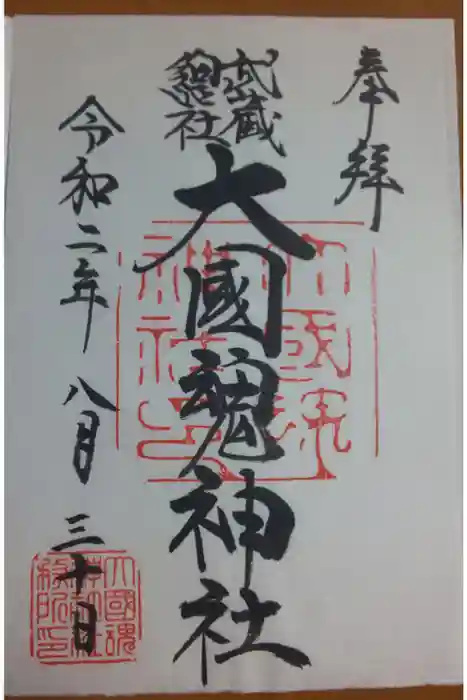 奉拝
武蔵
総社
大國魂神社
令和二年八月三十日
大國魂
神社
大國魂
神社
務所印